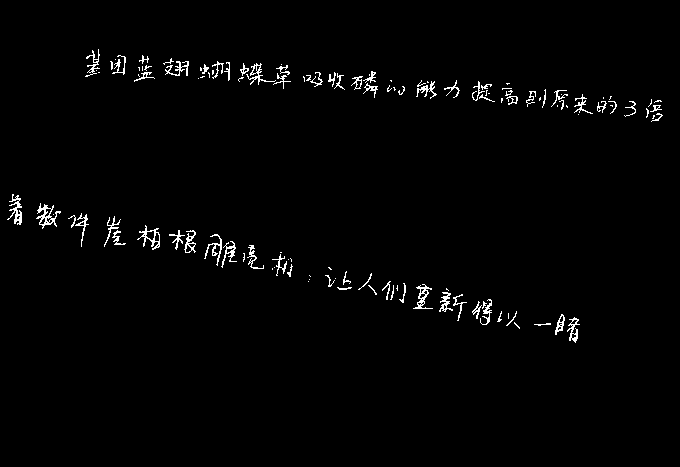 基因蓝翅蝴蝶草吸收磷的能力提高到原来的3倍
着数件崖柏根雕亮相，让人们重新得以一睹